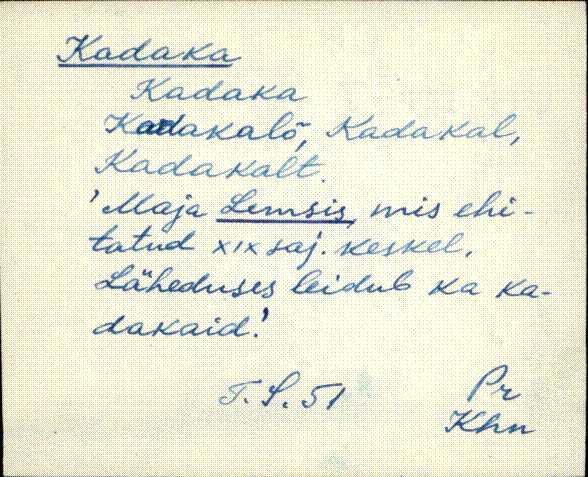 Kadaka
Kadaka
Kadakalõ, Kadakal,
Kadakalt.
'Maja Lemsis, mis ehi-
tatud XIX saj. keskel.
Läheduses leidub ka ka-
dakaid.'
T.S. 51 Pr
Khn